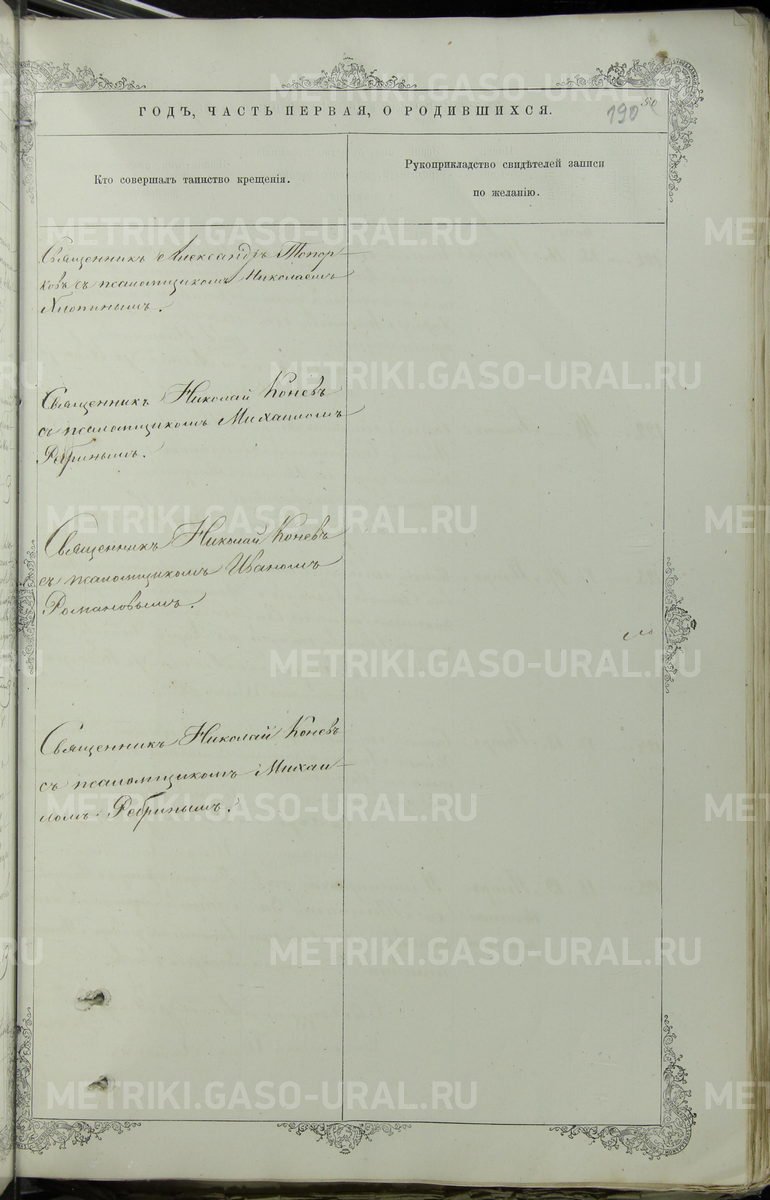 ГОДЪ, ЧАСТЬ ПЕРВАЯ, О РОДИВШИХСЯ.
190
Кто совершалъ таинство крещенія.
Рукоприкладство свидѣтелей записи
по желанію.
Священникъ Александръ Топор-
ковъ съ псаломщикомъ Николаемъ
Хлопинымъ.
Священникъ Николай Коневъ
съ псаломщикомъ Михаиломъ
Ребринымъ.
Священникъ Николай Коневъ
съ псаломщикомъ Иваномъ
Романовымъ.
Священникъ Николай Коневъ
съ псаломщикомъ Михаи-
ломъ Ребринымъ.
METRIKI.GASO-URAL.RU